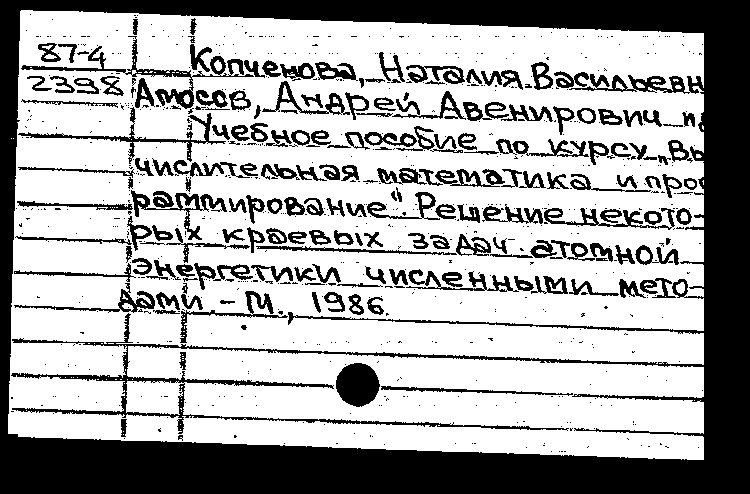 87-4
2398
Копченова, Наталия Васильевн
Амосов, Андрей Авенирович и
Учебное пособие по курсу „Вы
числительная математика и прог
раммирование“. Решение некото-
рых краевых задач атомной
энергетики численными мето-
дами. – М., 1986.